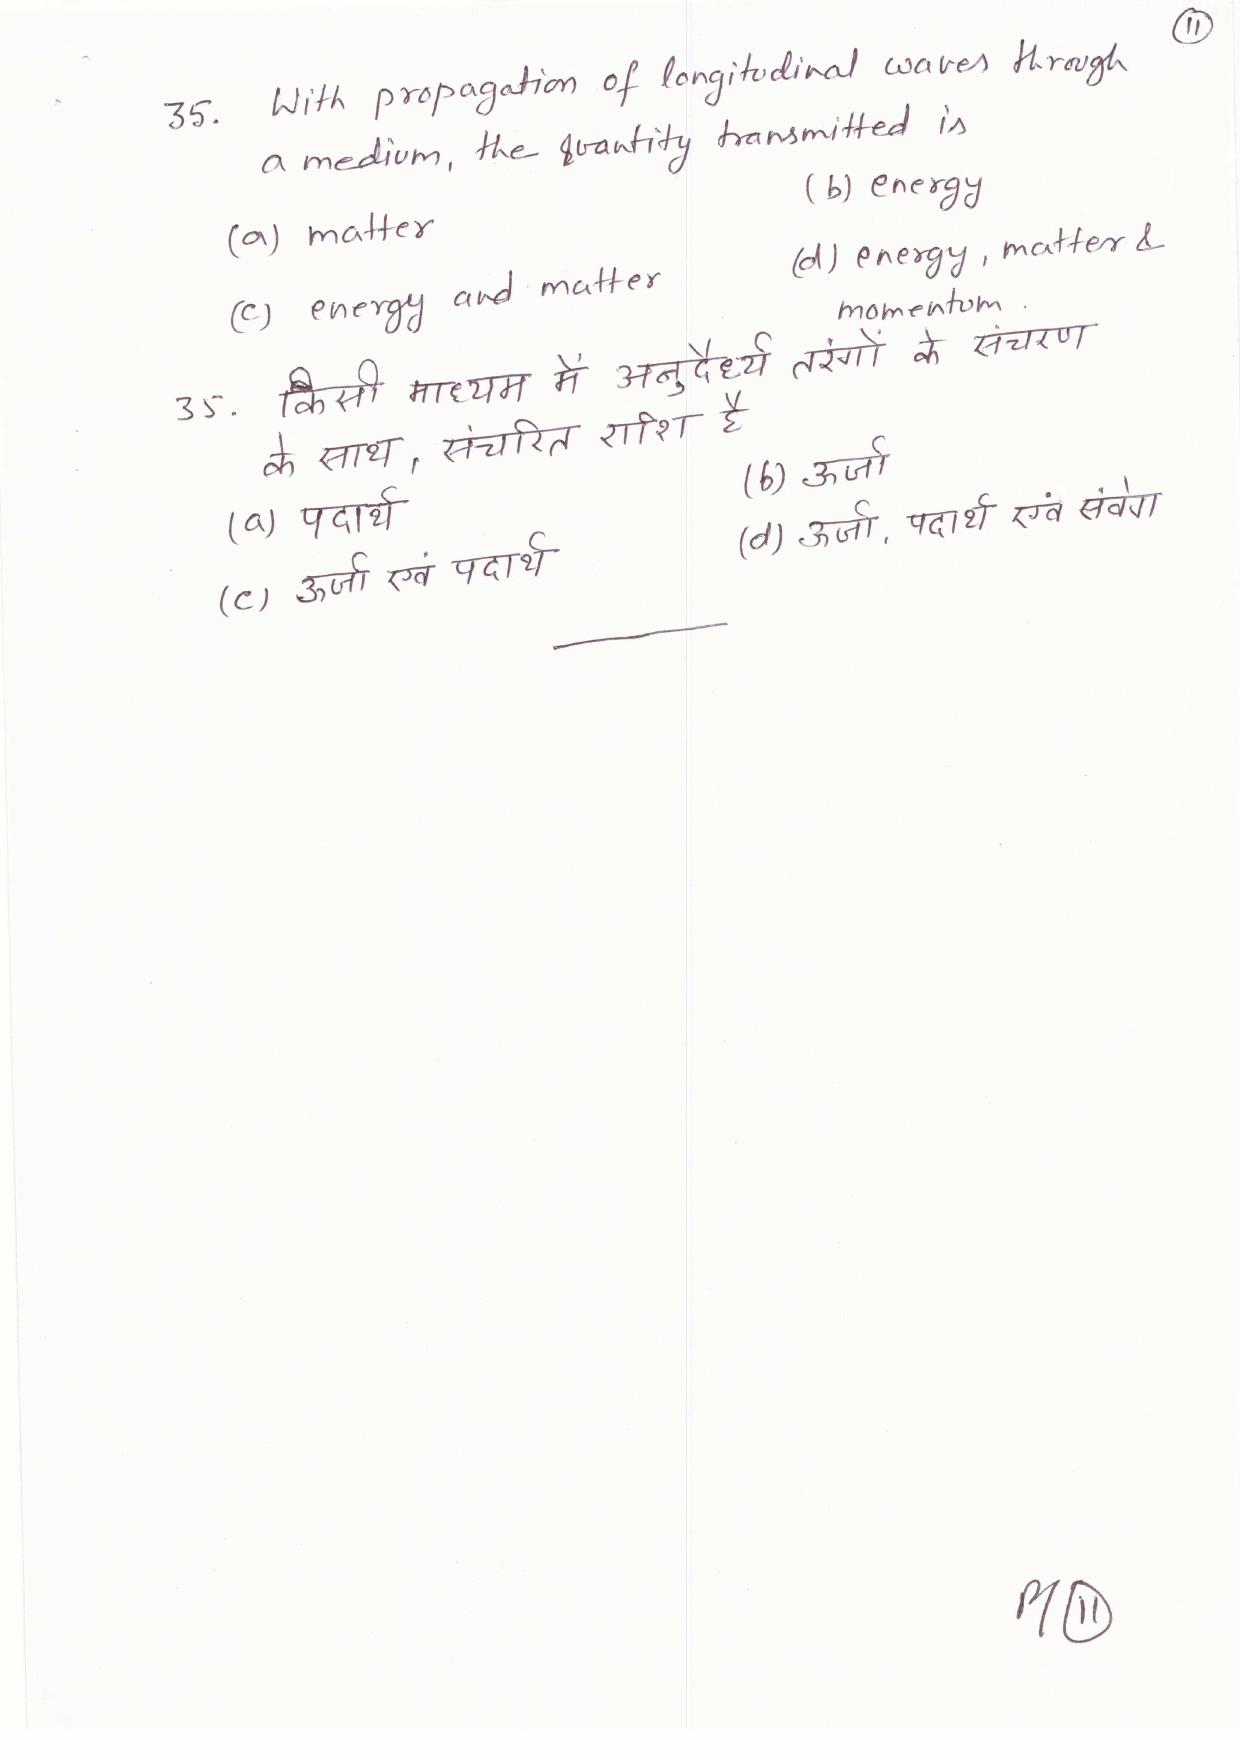 11
35. With propagation of longitudinal waves through
a medium, the quantity transmitted is
(a) matter (b) energy
(c) energy and matter (d) energy, matter &
momentum.
35. किसी माध्यम में अनुदैर्ध्य तरंगों के संचरण
के साथ, संचरित राशि है
(a) पदार्थ (b) ऊर्जा
(c) ऊर्जा एवं पदार्थ (d) ऊर्जा, पदार्थ एवं संवेग
11